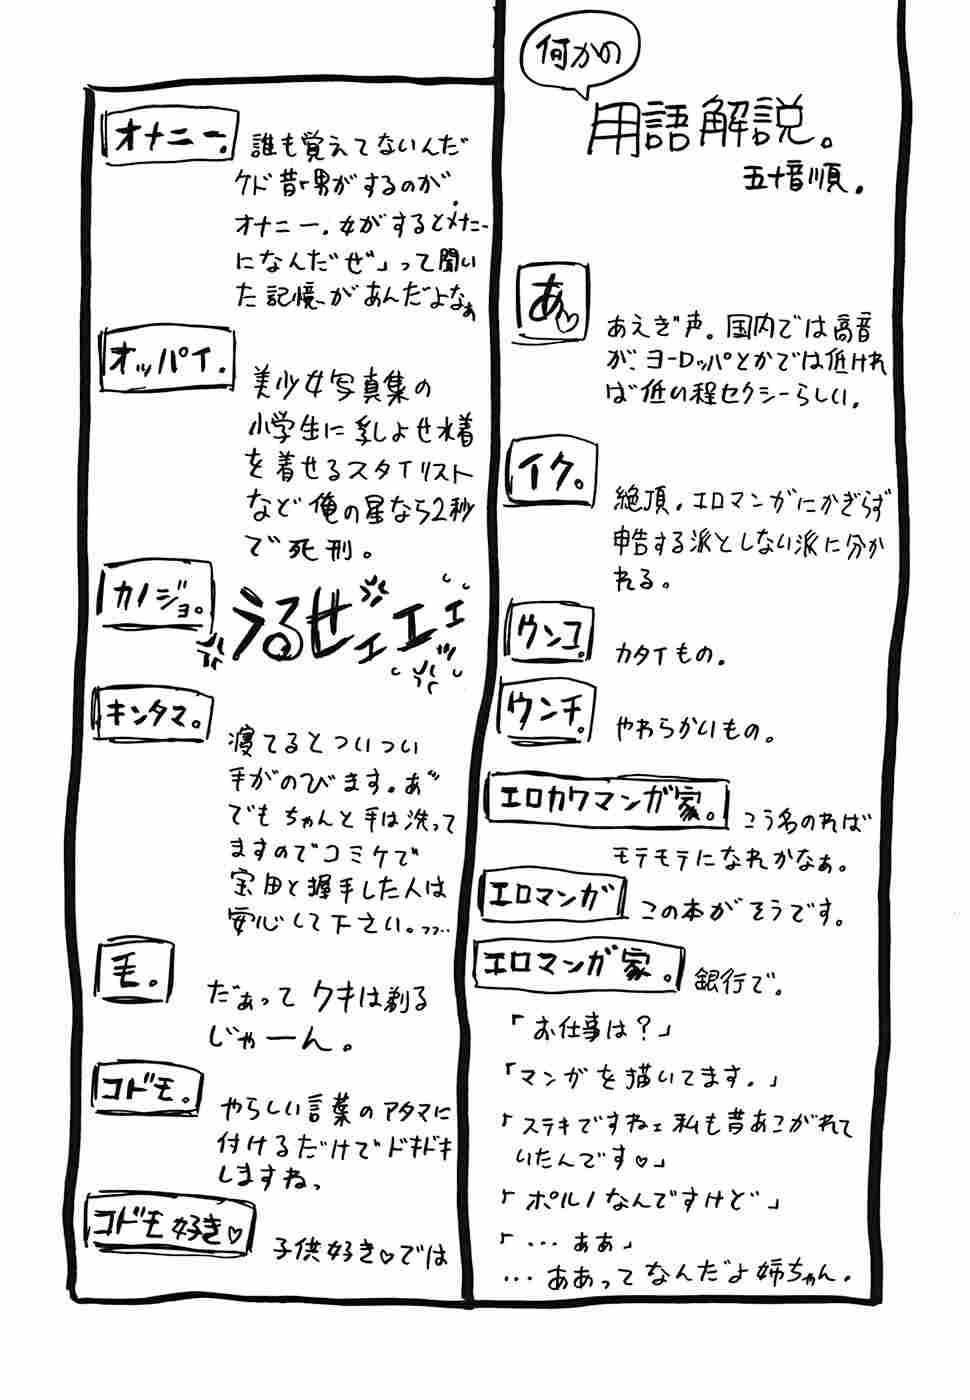 何かの
用語解説。
五十音順。
あ♡
あえぎ声。国内では高音
が、ヨーロッパとかでは低けれ
ば低い程セクシーらしい。
イク。
絶頂。エロマンガにかぎらず
申告する派としない派に分か
れる。
ウンコ。
カタイもの。
ウンチ。
やわらかいもの。
エロカワマンガ家。
こう名のれば
モテモテになれかなぁ。
エロマンガ
この本がそうです。
エロマンガ家。
銀行で。
「お仕事は?」
「マンガを描いてます。」
「ステキですねェ私も昔あこがれて
いたんです♡」
「ポルノなんですけど」
「…ああ」
…ああってなんだよ姉ちゃん。
オナニー。
誰も覚えてないんだ
ケド昔「男がするのが、
オナニー。女がするとメナニー
になんだぜ」って聞い
た記憶があんだよなぁ
オッパイ。
美少女写真集の
小学生に乳しよせ水着
を着せるスタイリスト
など俺の星なら2秒
で死刑。
カノジョ。
うるせェエエ
キンタマ。
寝てるとついつい
手がのびます。あ"
でもちゃんと手は洗って
ますのでコミケで
宝田と握手した人は
安心して下さい。フフ…
毛。
だぁって クキは剃る
じゃーん。
コドモ。
やらしい言葉のアタマに
付けるだけでドキドキ
しますね。
コドモ好き♡
子供好き♡では